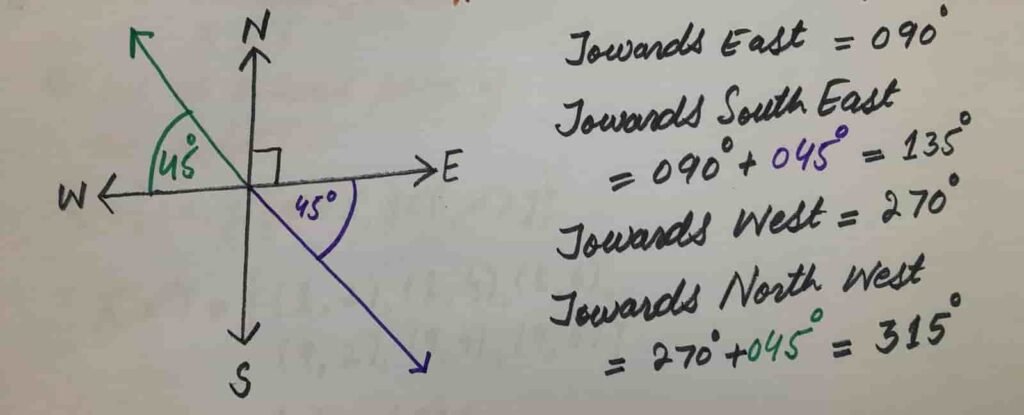 N
45°
W
E
45°
S
Towards East = 090°
Towards South East
= 090° + 045° = 135°
Towards West = 270°
Towards North West
= 270° + 045° = 315°